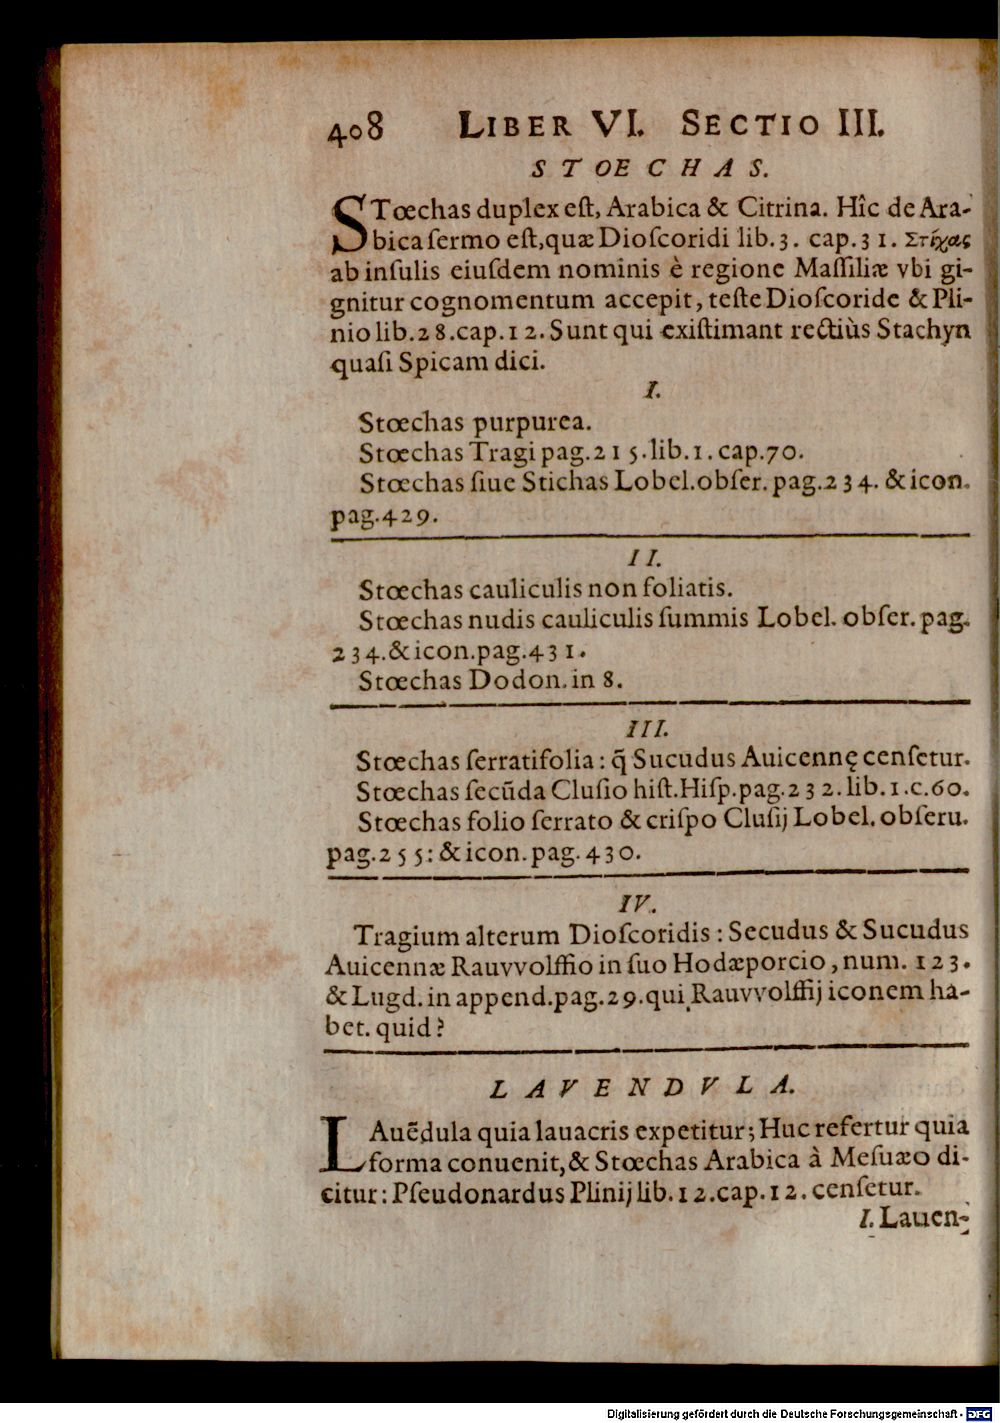 408 LIBER VI. SECTIO III.
STOECHAS.
STœchas duplex eſt, Arabica & Citrina. Hîc de Ara-
bica ſermo eſt, quæ Dioſcoridi lib. 3. cap. 31. Στίχας
ab inſulis eiuſdem nominis è regione Maſſiliæ vbi gi-
gnitur cognomentum accepit, teſte Dioſcoride & Pli-
nio lib. 28. cap. 12. Sunt qui exiſtimant rectiùs Stachyn
quaſi Spicam dici.
I.
Stœchas purpurea.
Stœchas Tragi pag. 215. lib. 1. cap. 70.
Stœchas ſiue Stichas Lobel. obſer. pag. 234. & icon.
pag. 429.
II.
Stœchas cauliculis non foliatis.
Stœchas nudis cauliculis ſummis Lobel. obſer. pag.
234. & icon. pag. 431.
Stœchas Dodon. in 8.
III.
Stœchas ſerratifolia: q̃ Sucudus Auicennę cenſetur.
Stœchas ſecũda Cluſio hiſt. Hiſp. pag. 232. lib. 1. c. 60.
Stœchas folio ſerrato & criſpo Cluſij Lobel. obſeru.
pag. 255: & icon. pag. 430.
IV.
Tragium alterum Dioſcoridis: Secudus & Sucudus
Auicennæ Rauvvolffio in ſuo Hodæporcio, num. 123.
& Lugd. in append. pag. 29. qui Rauvvolffij iconem ha-
bet. quid?
LAVENDVLA.
LAuẽdula quia lauacris expetitur; Huc refertur quia
forma conuenit, & Stœchas Arabica à Meſuæo di-
citur: Pſeudonardus Plinij lib. 12. cap. 12. cenſetur.
I. Lauen-
Digitalisierung gefördert durch die Deutsche Forschungsgemeinschaft - DFG